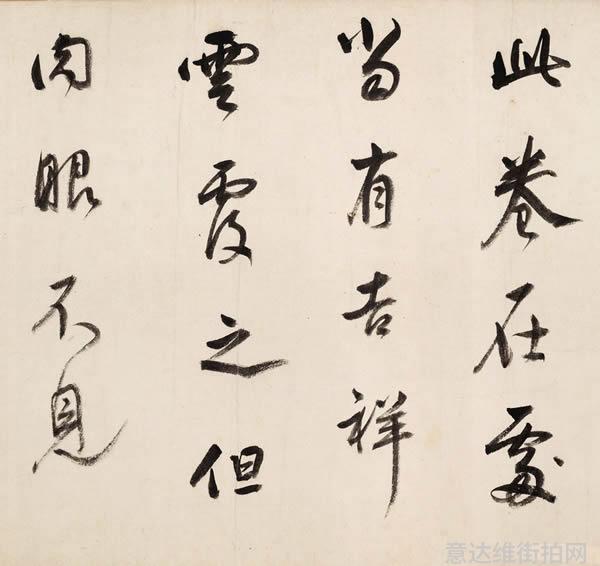 此卷在處
当有吉祥
雲覆之但
肉眼不見
意达维街拍网